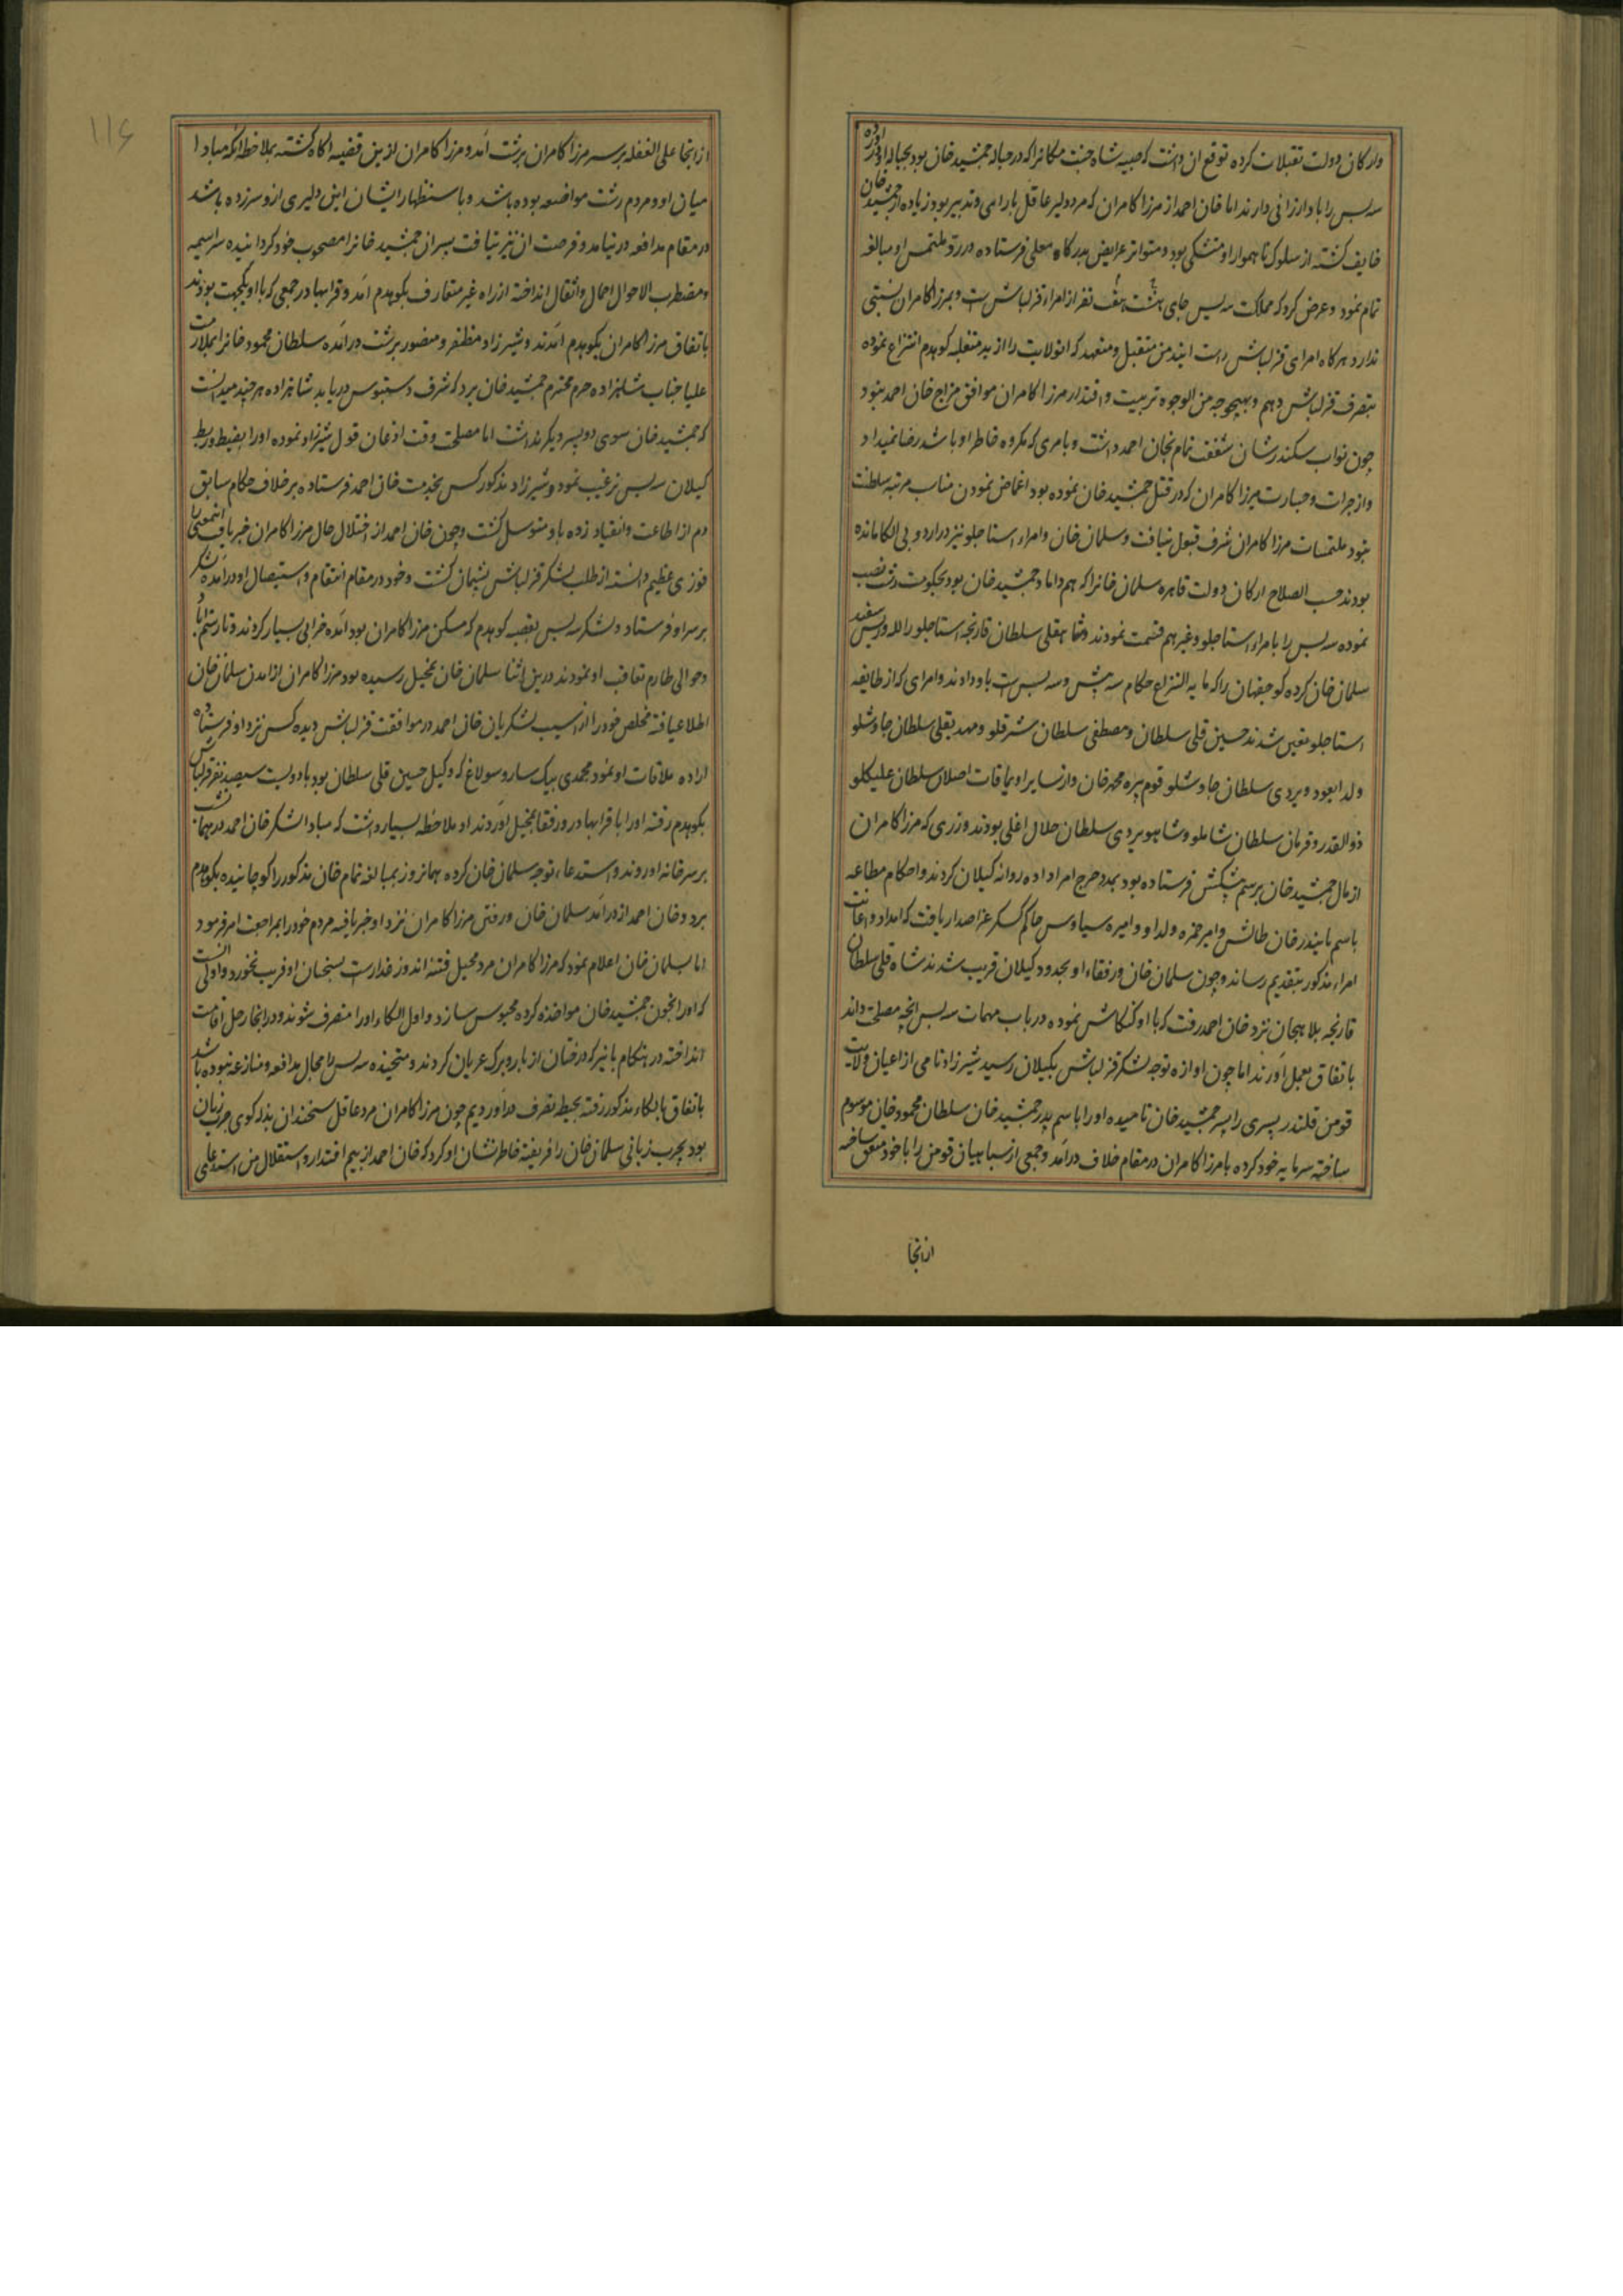 وارکان دولت تقبلات کرده توقع ان داشت که صبیه شاه جنت مکانرا که در حباله جمشید خان بود بحباله او دراورده
سه پس را باو ارزانی دارند اما خان احمد از مرزا کامران که مرد دلیر عاقل با رای و تدبیر بود زیاده از جمشید خان
خایف کشته از سلوک ناهموار او متشکی بود و متواتر عرایض بدرکاه معلی فرستاده در رد ملتمس او مبالغه
تمام نمود و عرض کرد که مملکت سه پس جای هشت هفت نفر از امراء قزلباش است و بمرزا کامران نسبتی
ندارد هرکاه امرای قزلباش راست ایند من متقبل و متعهدم که انولایت را از ید متغلبه کوهدم انتزاع نموده
بتصرف قزلباش دهم و بهیچوجه من الوجوه تربیت و اقتدار مرزا کامران موافق مزاج خان احمد نبود
چون نواب سکندر شان شفقت تمام بخان احمد داشت و بامری که مکروه خاطر او باشد رضا نمیداد
و از جرات و جسارت میرزا کامران که در قتل جمشید خان نموده بود اغماض نمودن مناسب مرتبه سلطنت
نبود ملتمسات مرزا کامران شرف قبول نیافت و سلمان خان وامراء استاجلو نیز در اردو بی الکا مانده
بودند حسب الصلاح ارکان دولت قاهره سلمان خانرا که هم داماد جمشید خان بود بحکومت رشت نصب
نموده سه پس را بامراء استاجلو وغیرهم قسمت نمودند و شاهقلی سلطان قارنجه استاجلو را لله و ریش سفید
سلمان خان کرده کوجفهان را که ما به النزاع حکام بیه پیش و سه پس است باو دادند و امرای که از طایفه
استاجلو معین شدند حسین قلی سلطان و مصطفی سلطان شرفلو و مهدیقلی سلطان چاوشلو
ولد ایعود ویردی سلطان چاوشلو قوم پیره محمد خان و از سایر اویماقات اصلان سلطان علیکلو
ذوالقدر و قربان سلطان شاملو و شاهویردی سلطان حلال اغلی بودند و زری که مرزا کامران
از مال جمشید خان برسم پیشکش فرستاده بود بمدد خرج امرا داده روانه کیلان کردند و احکام مطاعه
باسم بایندر خان طالش و امیر حمزه ولد او و امیره سیاوس حاکم کسکر عز اصدار یافت که امداد و اعانت
امراء مذکور بتقدیم رساند و چون سلمان خان و رفقاء او بحدود کیلان قریب شدند شاه قلی سلطان
قارنجه بلاهجان نزد خان احمد رفت که با او کنکاش نموده در باب مهمات سه پس انچه مصلحت داند
باتفاق بعمل آورند اما چون اوازه توجه لشکر قزلباش بکیلان رسید شیرزاد نامی از اعیان ولایت
قومن قلندر پسری را پسر جمشید خان نامیده اورا باسم پدر جمشید خان سلطان محمود خان موسوم
ساخته سرمایه خود کرده با مرزا کامران در مقام خلاف درآمد و جمعی از سپاهیان قومن را با خود متفق ساخته
ازانجا
۱۱۶
ازانجا علی الغفله بر سر مرزا کامران برشت آمد و مرزا کامران ازین قضیه اکاه کشته بملاحظه انکه مبادا
میان او و مردم رشت مواضعه بوده باشد و باستظهار ایشان این دلیری ازو سرزده باشد
در مقام مدافعه در نیامد و فرصت ان نیز نیافت پسران جمشید خانرا مصحوب خود کردانیده سراسیمه
و مضطرب الاحوال احمال و اثقال انداخته از راه غیر متعارف بکوهدم آمد و قرابهادر جمعی که با او یکجهت بودند
باتفاق مرزا کامران بکوهدم آمدند و شیرزاد مظفر و منصور برشت درآمده سلطان محمود خانرا بملازمت
علیا جناب شاهزاده حرم محترم جمشید خان برد که شرف دستبوس دریابد شاهزاده هرچند میدانست
که جمشید خان سوی دو پسر دیکر نداشت اما مصلحت وقت اذعان قول شیرزاد نموده اورا بضبط و ربط
کیلان سه پس ترغیب نمود و شیرزاد مذکور کس بخدمت خان احمد فرستاده برخلاف حکام سابق
دم از اطاعت و انقیاد زده باو متوسل کشت و چون خان احمد از اختلال حال مرزا کامران خبر یافت انمعنی را
فوزی عظیم دانسته از طلب لشکر قزلباش پشیمان کشت و خود در مقام انتقام و استیصال او درآمده لشکر
بر سر او فرستاد و لشکر سه پس بقصبه کوهدم که مسکن مرزا کامران بود آمده خرابی بسیار کردند و تا رستم اباد
و حوالی طارم تعاقب او نمودند درین اثنا سلمان خان بمنجیل رسیده بود مرزا کامران از آمدن سلمان خان
اطلاع یافته مخلص خود را از آسیب لشکریان خان احمد در موافقت قزلباش دیده کس نزد او فرستاده
اراده ملاقات او نمود محمدی بیک ساروسولاغ که وکیل حسین قلی سلطان بود با دویست سیصد نفر قزلباش
بکوهدم رفته اورا با قرابهادر و رفقا بمنجیل آوردند او ملاحظه بسیار داشت که مبادا لشکر خان احمد در همان شب
بر سر خانه او روند و استدعاء توجه سلمان خان کرده همانروز بمبالغه تمام خان مذکور را کوچانیده بکوهدم
برد و خان احمد از درآمد سلمان خان و رفتن مرزا کامران نزد او خبر یافته مردم خود را بمراجعت امر فرمود
اما بسلمان خان اعلام نمود که مرزا کامران مرد محیل فتنه اندوز غدار است بسخنان او فریب نخورد و اولی انست
که اورا بخون جمشید خان مواخذه کرده محبوس سازد و اول الکاء اورا متصرف شوند و در انجا رحل اقامت
انداخته در هنکام پائیز که درختان از بار و برک عریان کردند و متجنده سه پس را مجال مدافعه و منازعه نبوده باشد
باتفاق بالکاء مذکور رفته بحیطه تصرف درآوردیم چون مرزا کامران مرد عاقل سخندان بذله کوی چرب زبان
بود بچرب زبانی سلمان خان را فریفته خاطر نشان او کرد که خان احمد از بیم اقتدار و استقلال من استدعای